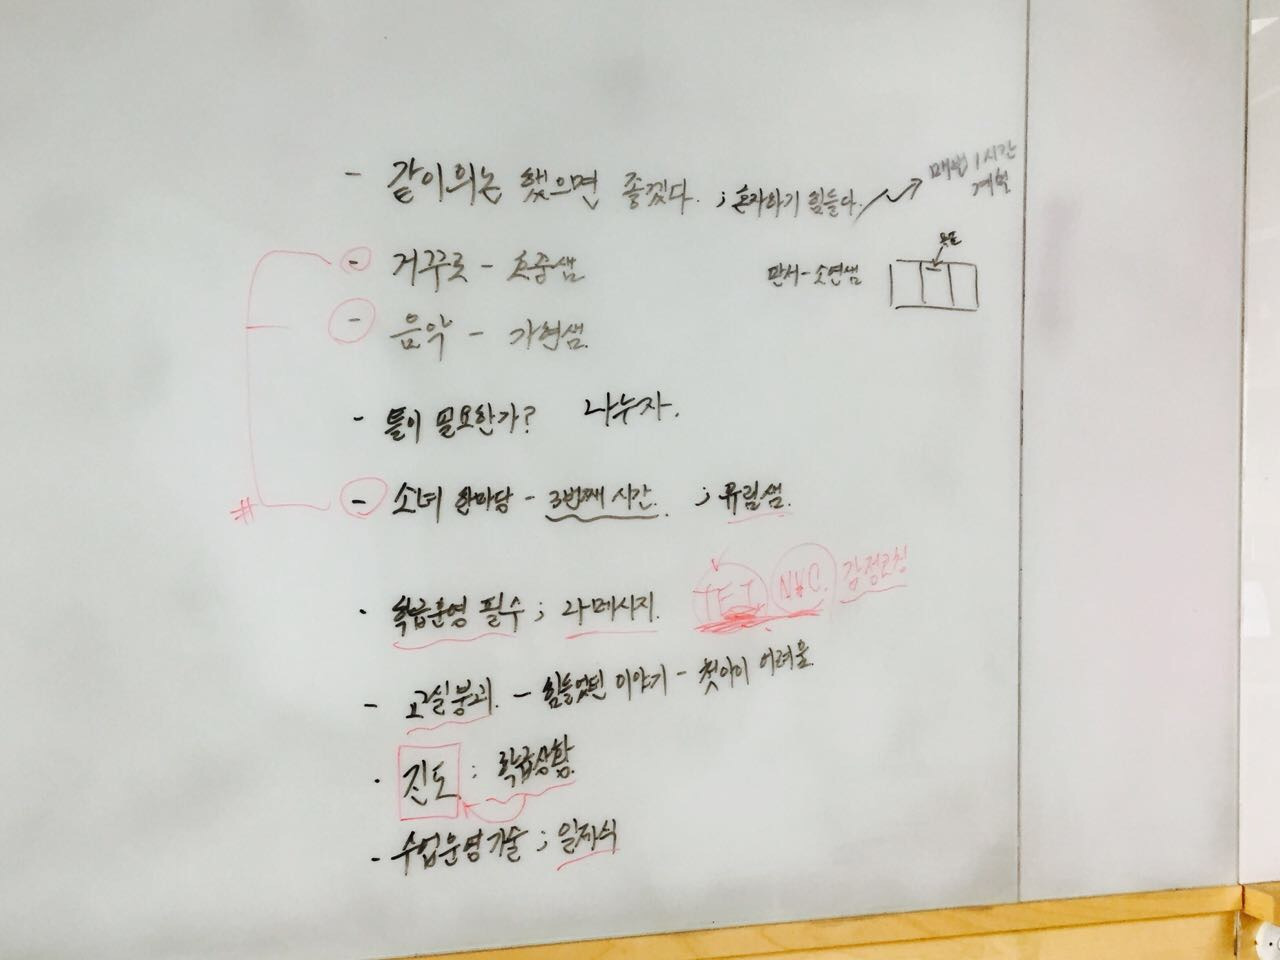 - 같이의논 했으면 좋겠다. ; 혼자하기 힘들다. 매번 1시간
계획
- 거꾸로 - 초중샘
판서 - 소연샘
- 음악 - 가현샘
- 틀이 필요한가? 나누자.
- 소녀 한마당 - 3번째 시간. ; 유림샘.
· 학급운영 필수 ; 나메시지. NVC. 감정코칭
- 교실붕괴. - 힘들었던 이야기 - 첫아이 어려움.
· 진도 : 학급상황.
- 수업운영기술 ; 일제식